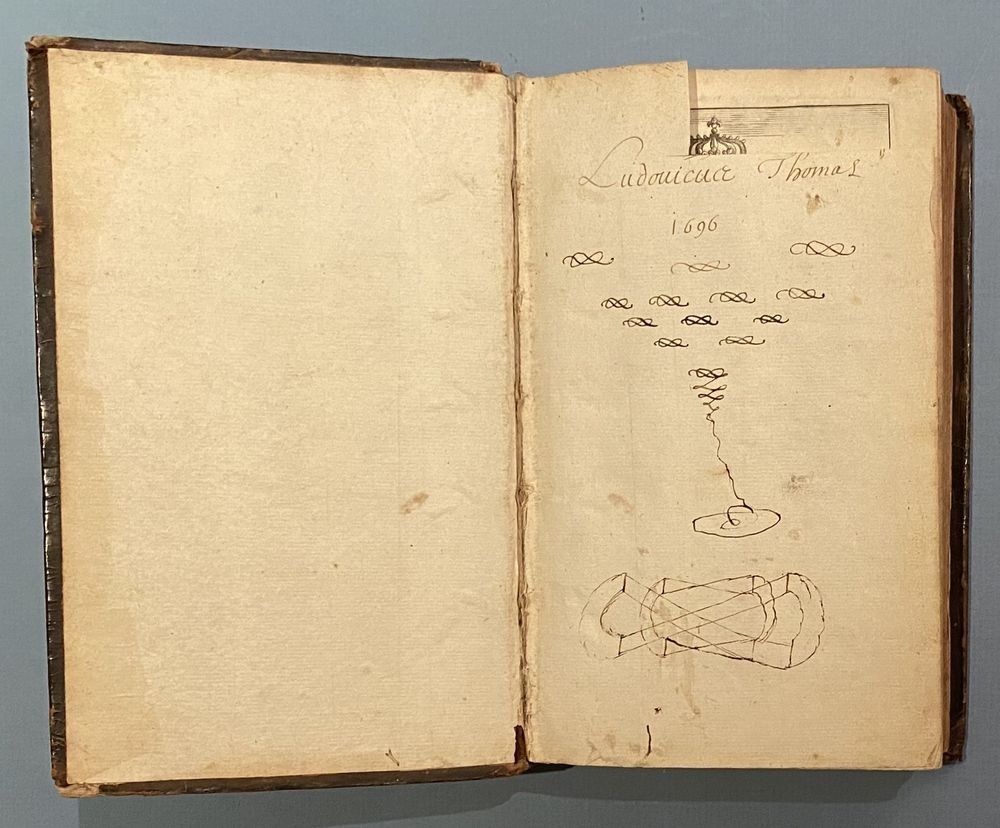 Ludouicus Thomas
1696